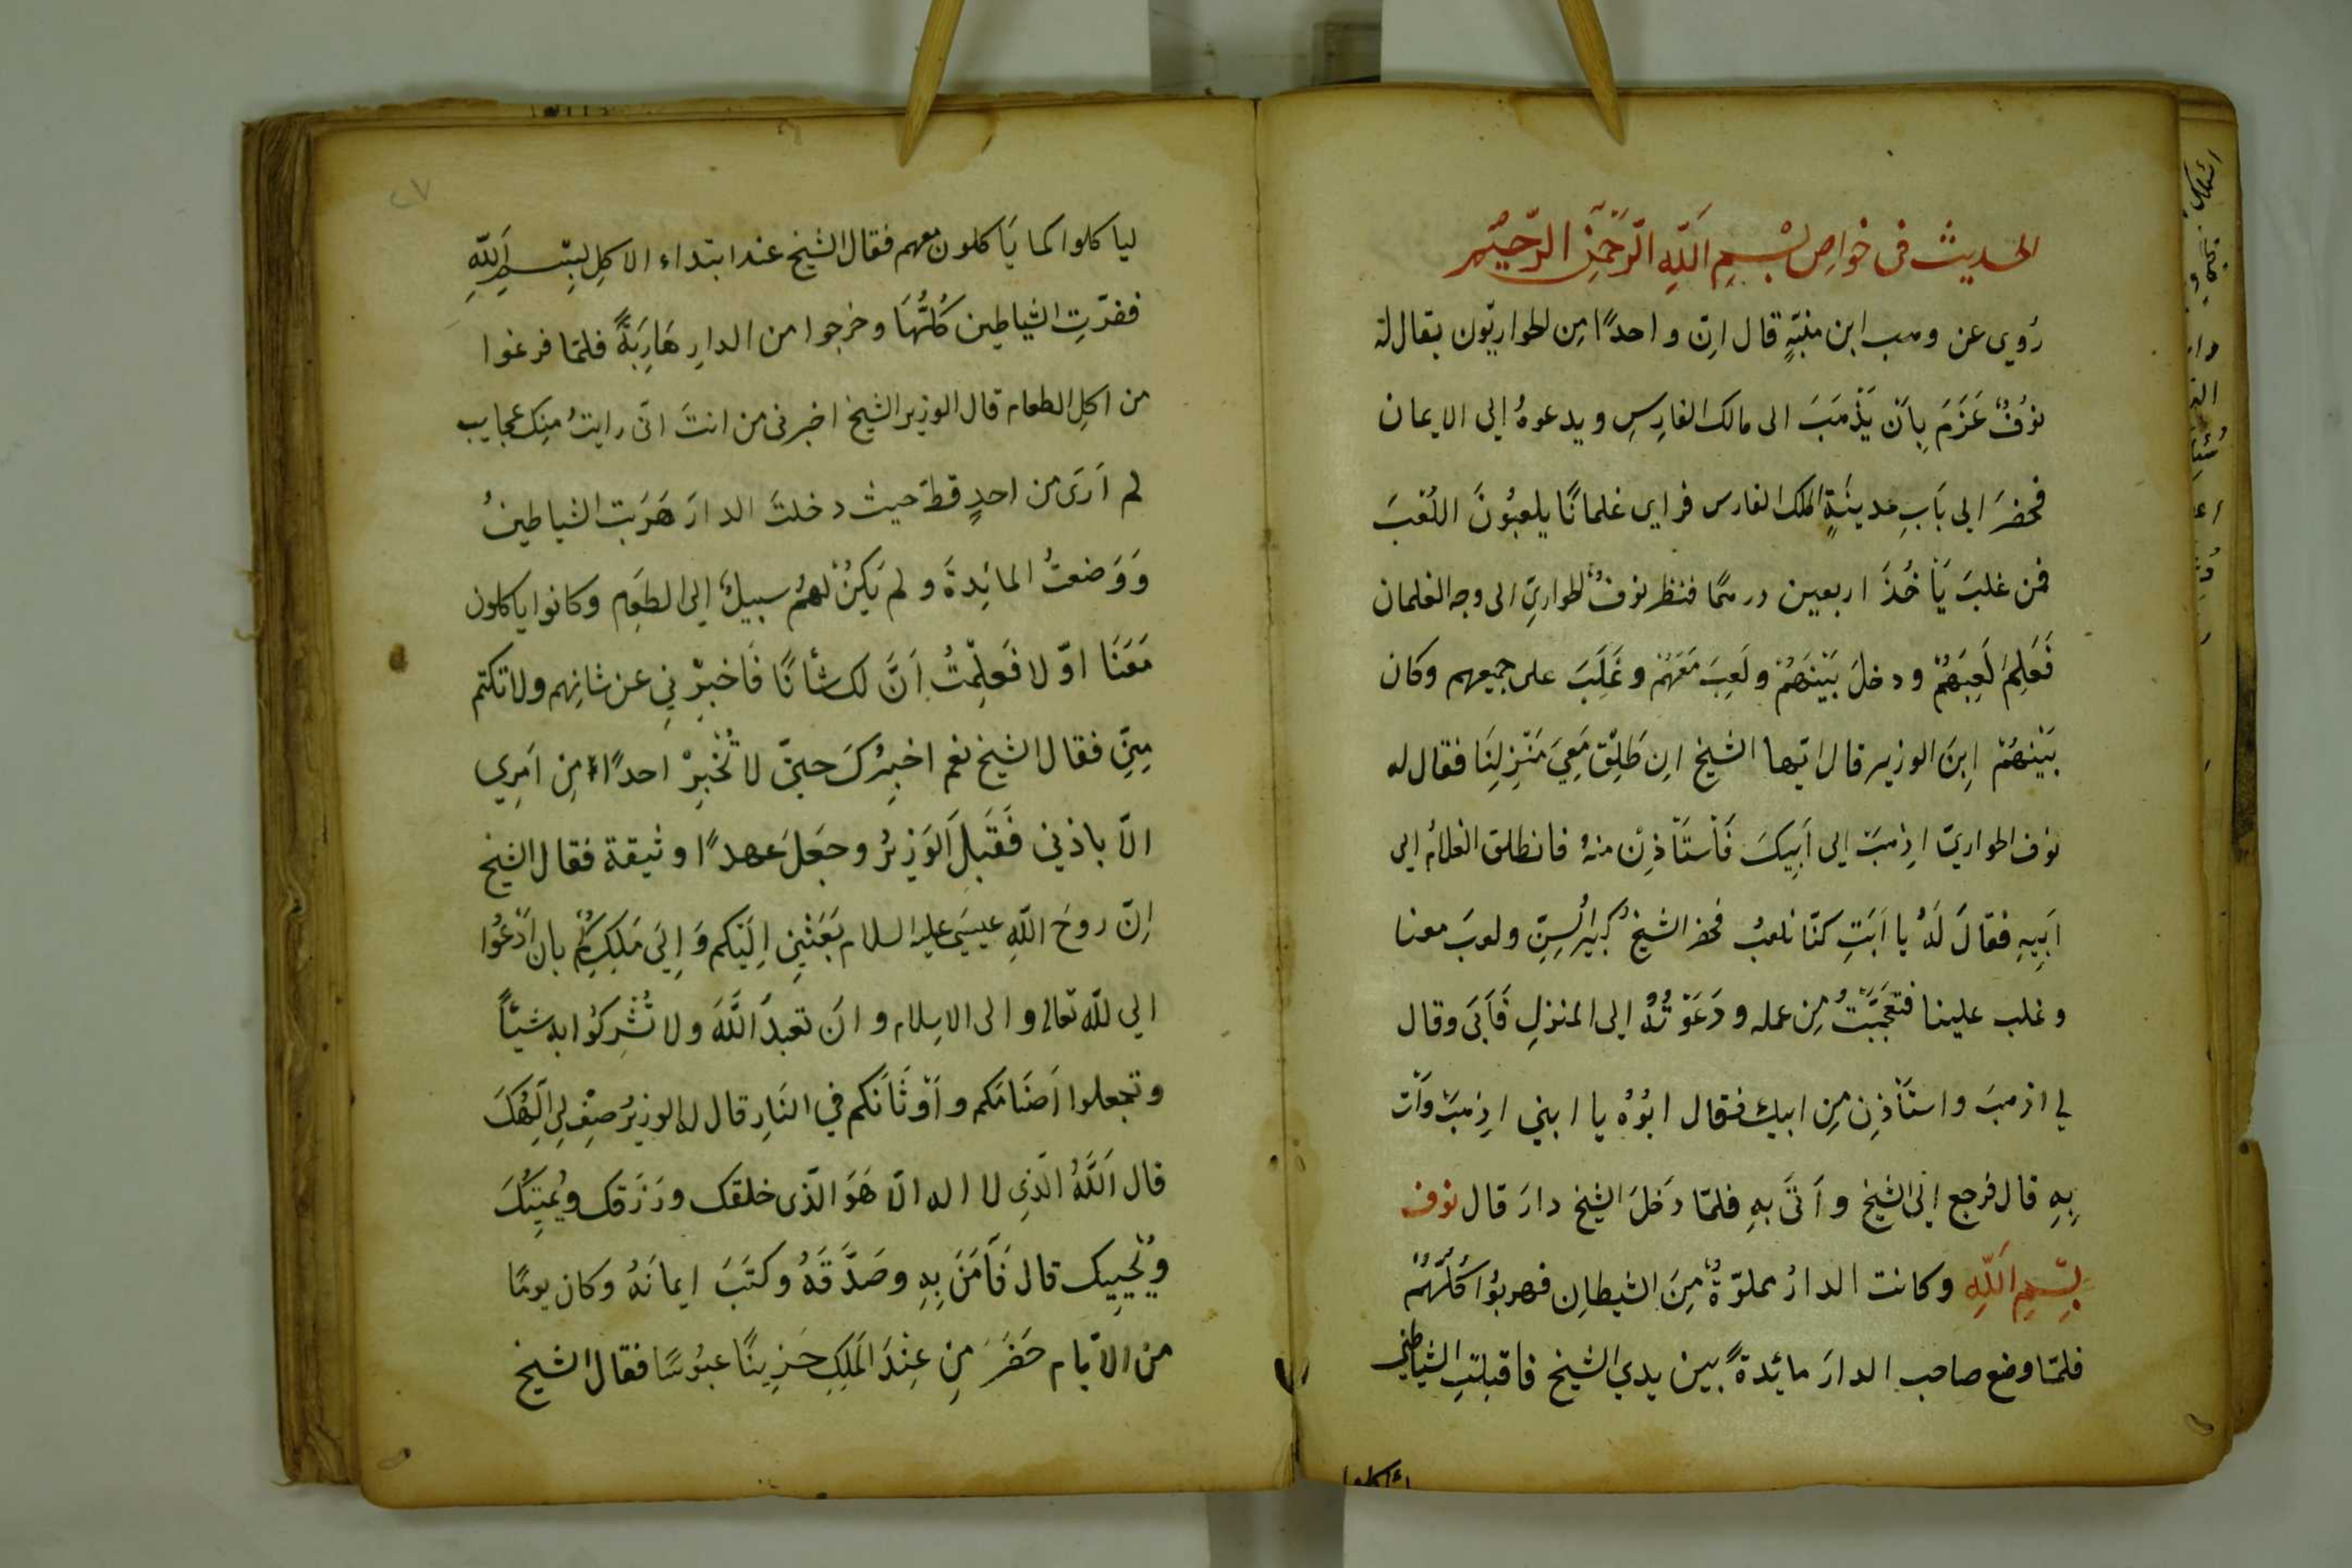 الحديث في خواص بسم الله الرحمن الرحيم
رُوي عن وهب ابن منبّهٍ قال انّ واحدًا مِن الحواريّون يقال له
نوُفٌ عَزَمَ بِاَن يَذْهَبَ الى مالك الفارِسِ ويدعوهُ إلى الايمان
فحضرَ الى بَابِ مدينَةِ الملك الفارس فراى غلمانًا يلعبُونَ اللعْبَ
فمن غلبَ يَأخُذَ اربعين درهمًا فنظر نوفٌ الحواريّ الى وجه الغلمان
فَعَلِمَ لَعِبَهُمْ ودخلَ بَيْنَهُمْ ولَعِبَ مَعَهُمْ وغَلَبَ على جميعهم وكان
بَيْنهُمْ اِبنَ الوزير قال ايّها الشيخ اِنطَلِقْ مَعِيَ مَنْزِلِنَا فقال له
نوف الحواريّ اذهبَ إلى اَبِيكَ فَاْستَأذِنْ منهُ فانطلق الغلامُ إلى
اَبِيهِ فقالَ لَهُ يا اَبَتِ كنّا نلعبُ فحضر الشيخُ كبيرُ السِنِّ ولعبَ معنا
وغلب علينا فتعَجَّبْتُ مِن عمله ودَعَوْتُهُ إلى المنزلِ فَاَبَى وقال
لي اذهبَ واستَأذِن مِن ابيك فقال ابُوُهُ يا ابني اذهبْ وَأت
بِهِ قال فرجع إلى الشيخ وأتَى بهِ فلمّا دَخلَ الشيخ دارَ قال نوف
بِسْمِ اللهِ وكانت الدارُ مملوّةٌ مِنَ الشيطانِ فهربُوا كُلّهُمْ
فلمّا وضع صاحب الدارَ مائدةً بين يدي الشيخ فاقبلتِ الشياطين
لياكلوا كما يَاكلون معهم فقال الشيخ عند ابتداء الاكلِ بِسْمِ اللهِ
ففرّتِ الشياطين كُلُّهَا وخرجوا من الدارِ هَارِبَةً فلمّا فرغوا
من اكلِ الطعام قال الوزير الشيخ اخبرنى من انتَ انّى رايتُ مِنك عجايب
لم اَرَى من احدٍ قطّ حيث دخلتَ الدارَ هَرَبَت الشياطينُ
وَوَضعتُ المائِدةَ ولم يَكُنْ لَهُمْ سبيلٌ إلى الطعَامِ وكانوا ياكلون
مَعَنَا اوّلا فَعَلِمْتُ اَنَّ لك شأنًا فَاَخبِرْنِي عن شانِهم ولا تكتم
مِنِّي فقال الشيخ نعم اخبِرُكَ حينّ لا تُخْبِرْ احدًا مِن اَمرِي
الّا باذني فَقَبَلَ الوَزِيرُ وجَعَلَ عهدًا وثيقة فقال الشيخ
اِنّ روحَ اللهِ عيسَى عليه السلام بَعَثَنِي اِلَيْكم وَاِلَى مَلِكِكُمْ بان اَدْعُوا
الي لله تعالى والى الاسلام وان تعبدَ اللهَ ولا تُشْرِكُوا بهِ شيئًا
وتجعلوا اَصنَامَكم واَوْثَانَكم في النَارِ قال له الوزيرُ صِفْ لِي اِلَهَكَ
قال اَللهُ الّذِي لا اله الّا هَوَ الّذى خلقك ورَزَقك ويُمِيتُكَ
ويُحْيِيك قال فَآمَنَ بِهِ وصَدَّقَهُ وكتَبَ ايمانَهُ وكان يومًا
من الاّيام حَضَرَ مِن عِنْدَ المَلِكِ حَزِينًا عبُوسًا فقال الشيخ